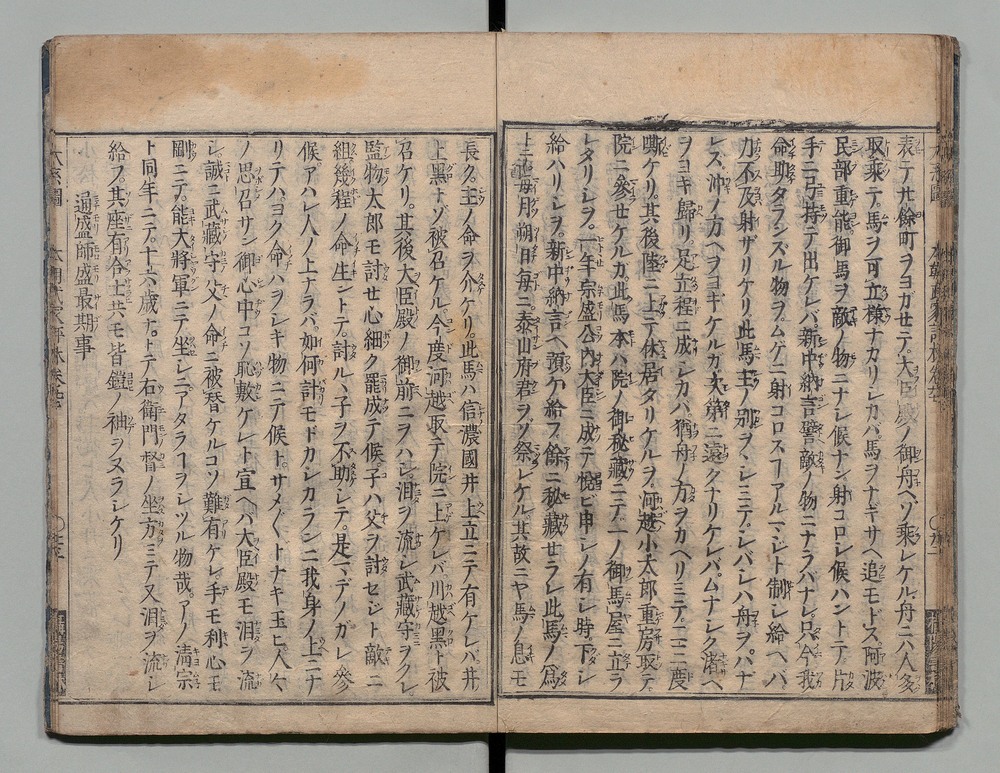 表テ廿餘町ヲヨガセテ。大臣殿ノ御舟ヘソ乗レケル舟ニ人多
取乗テ。馬ヲ可立様ナカリシカバ。馬ヲナギサヘ追モドス阿波
民部重能御馬ヲ敵ノ物ニナシ候ナン射コロシ候ハントテ。片
手ニ弓持テ出ケレバ。新中納言誓敵ノ物ニナラバナレ。只今我
命助タランズル物ヲ。ムゲニ射コロス丁アルマシト制シ給ヘバ
力不及射ザリケリ此馬主ノ別ヲヽシミテ。シバシハ舟ヲハナ
レズ沖ノ方ヘヲヨギケルガ。次第ニ遠クナリケレバ。ムナシク渚ヘ
ヲヨギ歸リ。足立程ニ成シカバ。猶舟ノ方ヲカヘリミテ。二三度
嘶ケリ。其後陸ニ上テ休居タリケルヲ。河越小太郎重房取テ
院ニ參セケルガ此馬本ハ院ノ御秘藏ニテ。一ノ御馬屋ニ立ラ
レタリシヲ。一年宗盛公内大臣ニ成テ悦ビ申シノ有シ時。下シ
給ハリシヲ。新中納言ヘ預ケ給フ。餘ニ秘藏セラレ此馬ノ爲
トテ毎月朔日毎ニ。泰山府君ヲゾ祭レケル。其故ニヤ馬ノ息モ
長久主ノ命ヲ介ケリ此馬ハ信濃國井上立ニテ有ケレバ。井
上黒トゾ被召ケル。今度河越取テ院ニ上ケレバ川越黒ト被
召ケリ。其後大臣殿ノ御前ニヲハシ泪ヲ流シ武藏守ヲクレ
監物太郎モ討せ心細ク罷成テ候。子ハ父ヲ討セジト敵ニ
組幾程ノ命生ントテ。討ルヽ子ヲ不助シテ。是マデノガレ參
候アハレ人ノ上ナラバ。如何計モドカシカランニ我身ノ上ニナ
リテハ。ヨク命ハヲシキ物ニテ候ト。サメ〴〵トナキ玉ヒ人々
ノ思召サン御心中コソ恥敷ケレト宜ヘハ大臣殿モ泪ヲ流
シ誠ニ武藏守父ノ命ニ被替ケルコソ難有ケレ。手モ利心モ
剛ニテ。能大將軍ニテ坐シニアタラ丁ヲシツル物哉。アノ清宗
ト同年ニテ。十六歳ナ。トテ右衛門督ノ坐方ミテ又泪ヲ流シ
給フ。其座有合士共モ皆鎧ノ袖ヲヌラシケリ
通盛師盛最期事